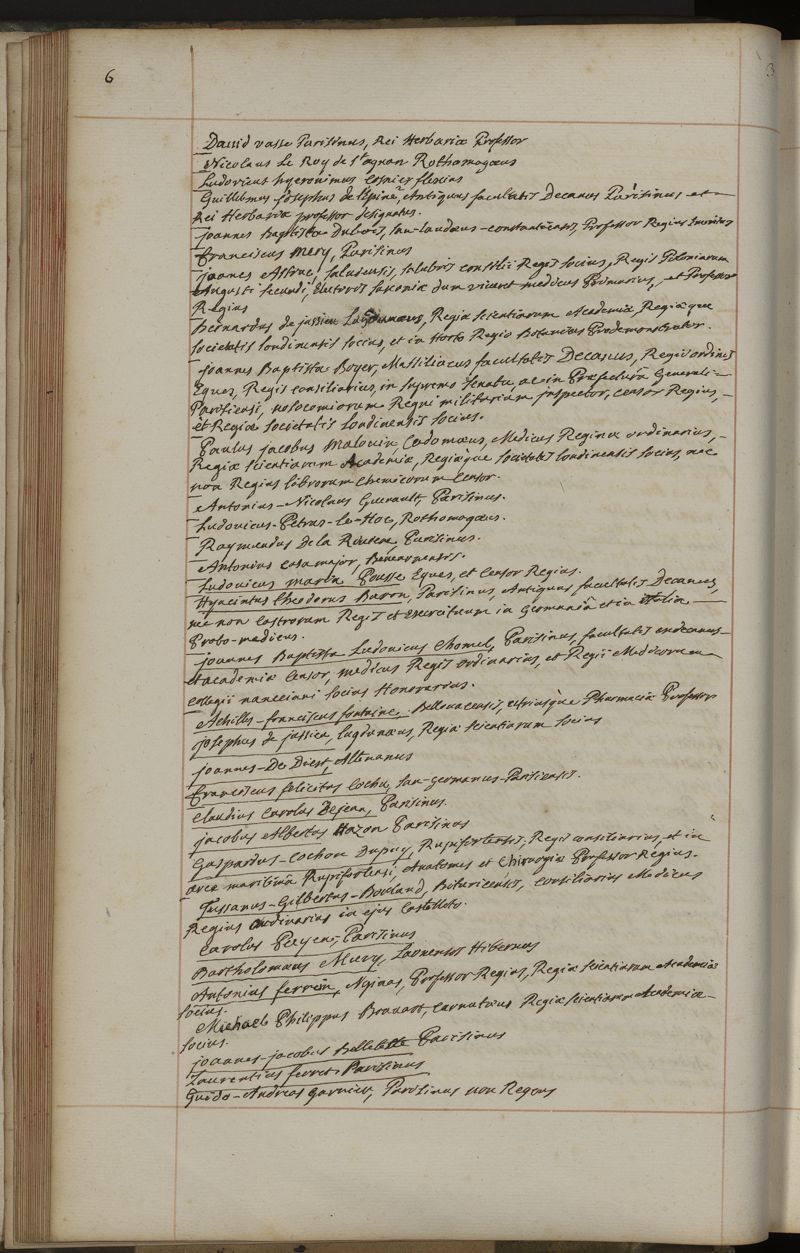 6
David vasse Parisinus, Rei Herbariæ Professor
Nicolaus Le Roy de St agnan Rothomagæus
Ludovicus hyeronimus Cosnier flexius
Guillelmus Josephus de l'Epine, Antiquus facultatis Decanus Parisinus et
Rei Herbariæ professor designatus.
joannes Baptista Dubois, san-laudæus-constantiensis, Professor Regius
franciscus Mery, Parisinus
joanes Astruc, salubris consilii Regis socius, Regis Poloniarum
Augusti secundi, Electoris saxoniæ dum viveret medicus Primarius, et Professor
Regius
Bernardus de jussieu Lugdunæus, Regiæ scientiarum Academiæ, Regiæque
societatis londinensis socius, et in Horto Regio Botanices Prodemonstrator.
joannes Baptista Boyer, Massiliacus facultatis Decanus, Regii ordinis
Eques, Regis consiliarius, in supremo senatu, ac in Præfectura Generali
Parisiensi, nosocomiorum Regni militarium jnspector, censor Regius,
et Regiæ societatis Londinensis socius.
Paulus jacobus Malouin, Cadomæus, Medicus Reginæ ordinarius,
Regiæ scientiarum Academiæ, Regiæque societatis londinensis socius, nec
non Regius librorum chemicorum Censor.
Antonius-Nicolaus Guenault, Parisinus.
Ludovicus-Petrus-le-Hoc, Rothomagæus.
Raymundus De la Riviere Parisinus.
Antonius casamajor, Benearnensis.
Ludovicus maria Pousse Eques, et Censor Regius.
Hyacintus theodorus Baron, Parisinus, Antiquus facultatis Decanus,
nec non Castrorum Regis et Exercituum in Germaniâ et in italia
Proto-medicus.
joannes Baptista Ludovicus Chomel, Parisinus, facultatis exdecanus
et academiæ Censor, medicus Regis ordinarius, et Regii Medicorum
collegii nanceiani socius Honorarius.
Achilles-franciscus fontaine, Bellovacensis, utriusque Pharmaciæ Professor
josephus de jussieu, lugdunæus, Regiæ scientiarum socius
joannes-De Diest, Altenanus
franciscus felicitas Cochu, san-germanus-Parisiensis.
Claudius Carolus Dejean, Parisinus.
jacobus Albertus Hazon Parisinus
Gaspardus-Cochon Dupuy, Rupifortensis, Regis consiliarius, et in
arce maritimâ Rupifortensi, Anatomes et Chirurgiæ Professor Regius.
Tussanus-Gilbertus-Bouland, Bituricensis, Consiliarius Medicus
Regius ordinarius in ejus Castelleto.
Carolus Payen, Parisinus
Bartholomæus Murry, Laonensis Hibernus
Antonius ferrein, Professor Regius, Regiæ scientiarum Academiæ
socius.
Michael Philippus Bouvart, Carnutæus Regiæ scientiarum Academiæ
socius.
joannes-jacobus Belleteste Parisinus
Laurentius ferret Parisinus
Guido-Andreas garnier, Parisinus non Regens